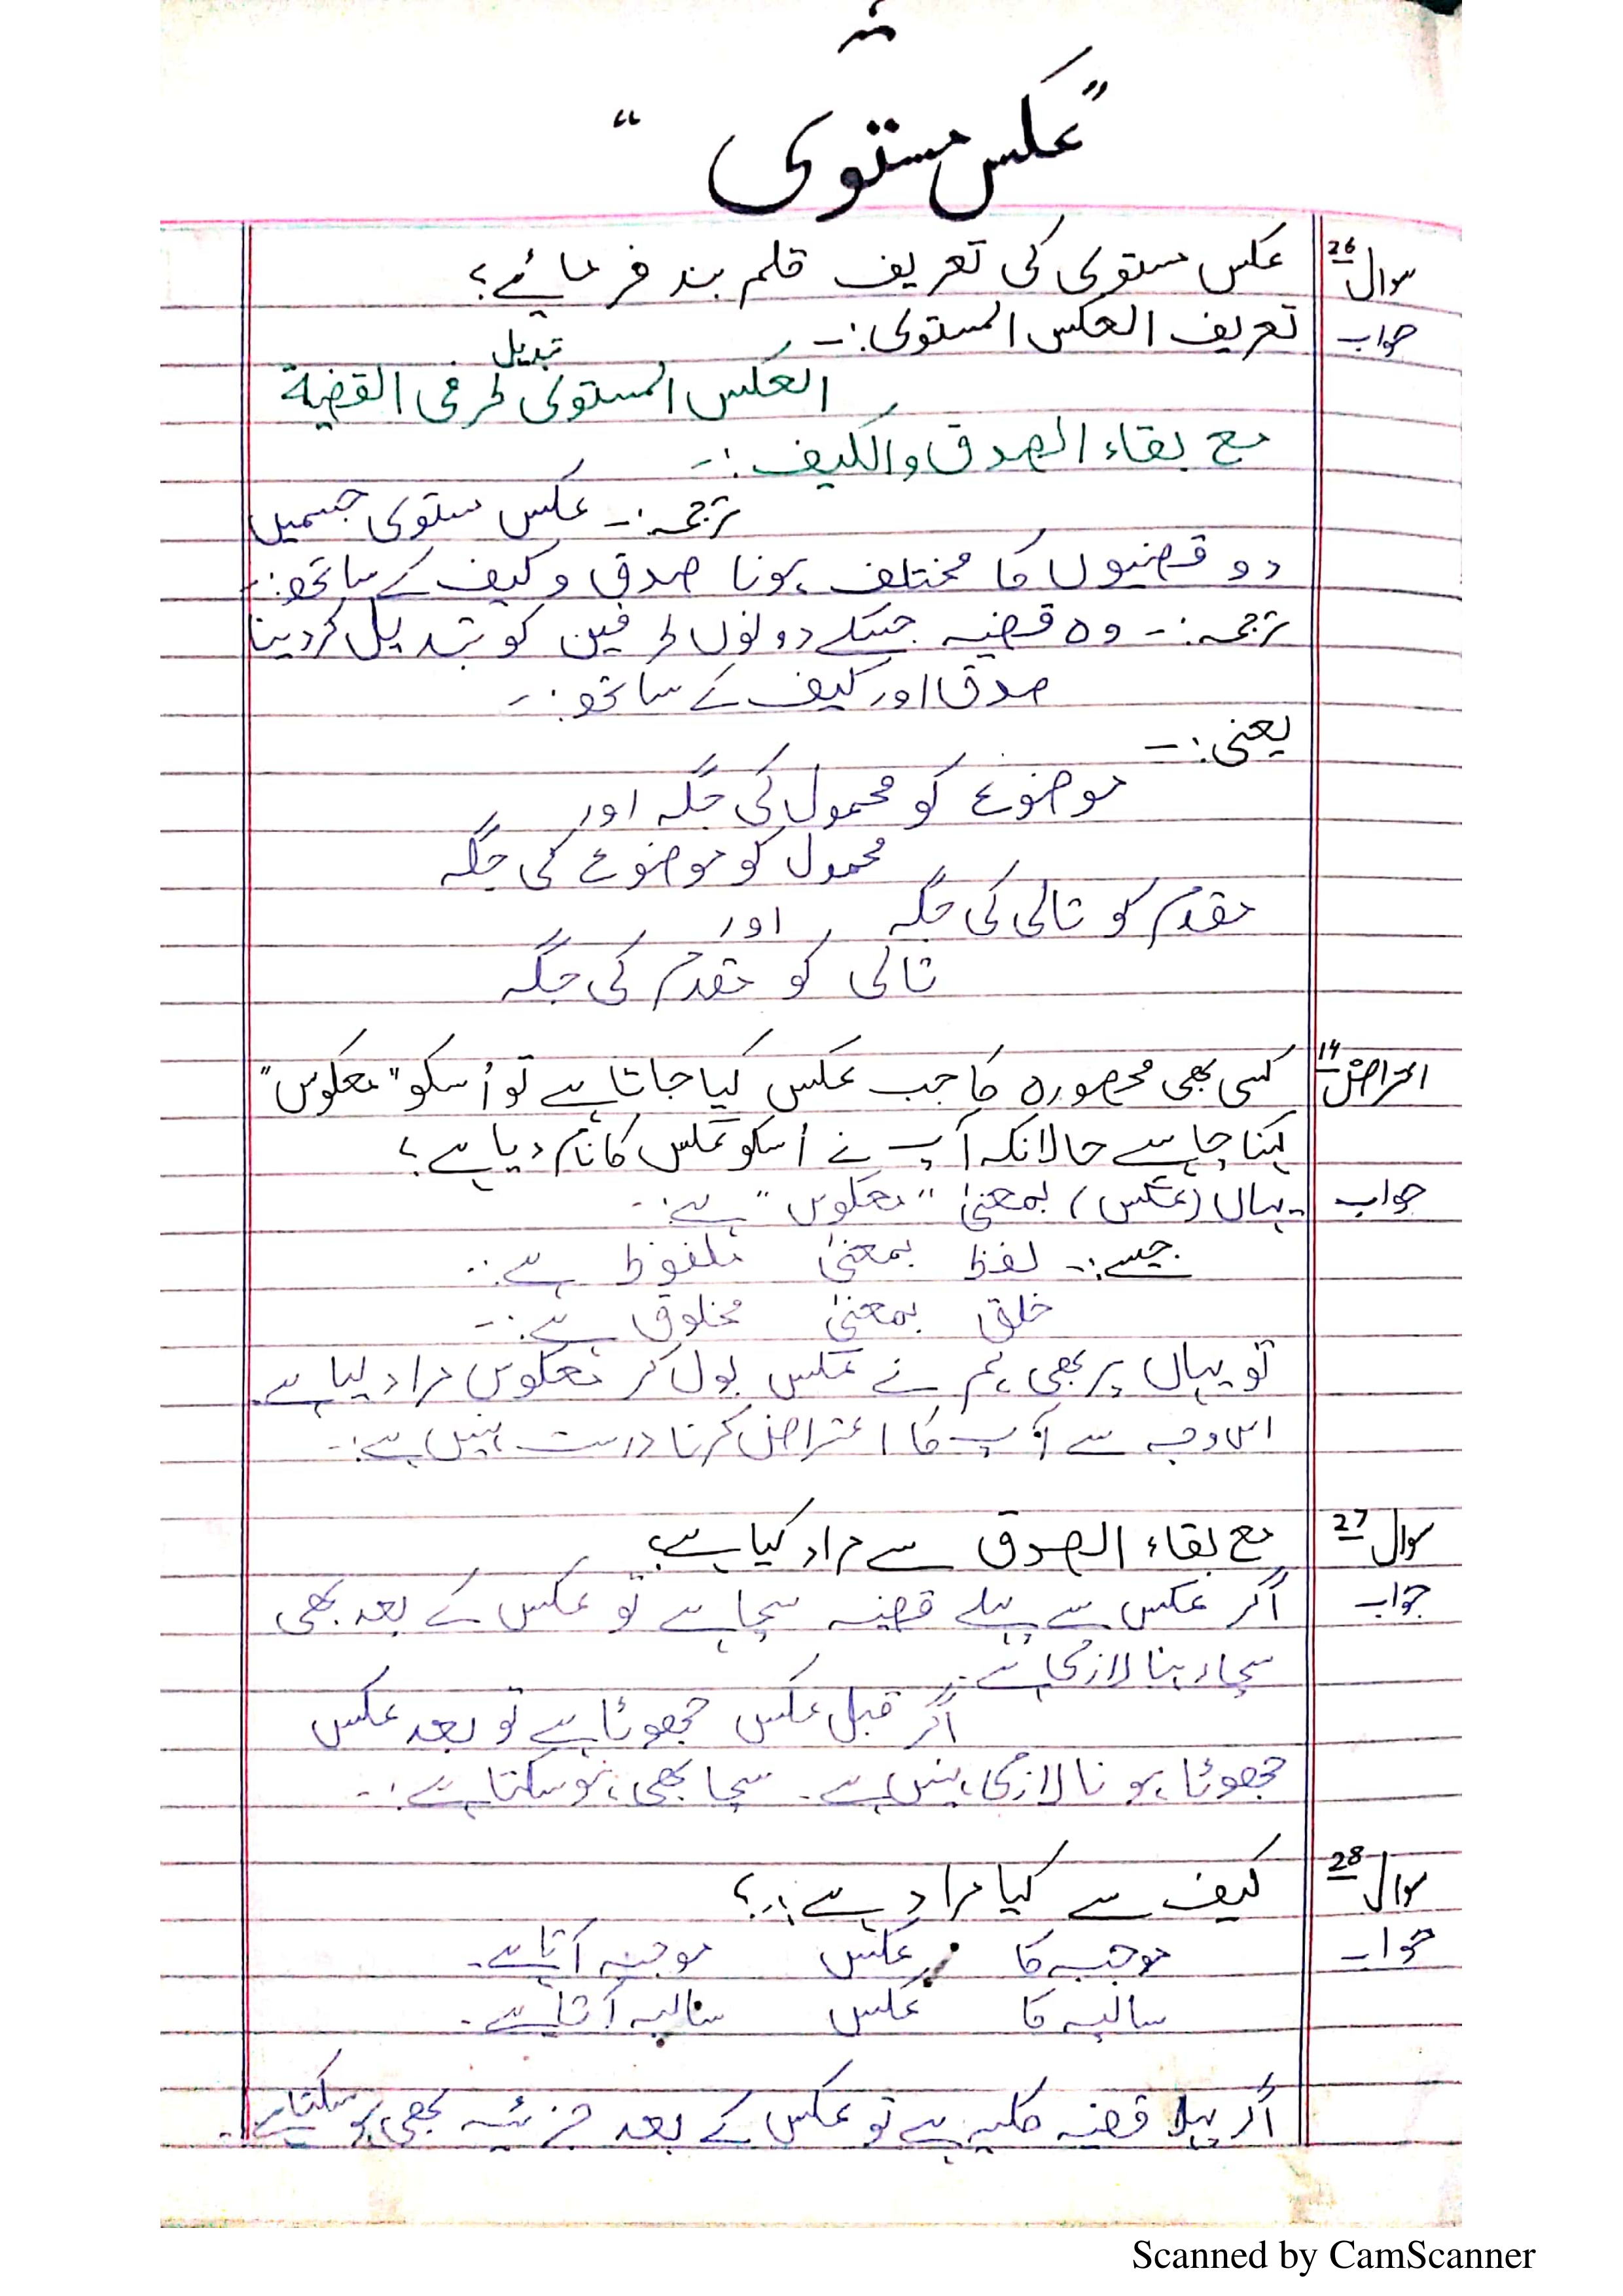 "عکس مستوی"
سوال 26 عکس مستوی کی تعریف قلم بند فرمائے؟
جواب تعریف العکس المستوی:۔
العکس المستوی تبدیل طرفی القضیة
مع بقاء الصدق والکیف:۔
ترجمہ:۔ عکس مستوی جسمیں
دو قضیوں کا مختلف ہونا صدق و کیف کے ساتھ:۔
ترجمہ:۔ وہ قضیہ جسکے دونوں طرفین کو تبدیل کردینا
صدق اور کیف کے ساتھ:۔
یعنی:۔
موضوع کو محمول کی جگہ اور
محمول کو موضوع کی جگہ
مقدم کو تالی کی جگہ اور
تالی کو مقدم کی جگہ
اعتراض 14 کسی بھی محصورہ کا جب عکس کیا جاتا ہے تو اُسکو "معکوس"
کہنا چاہیے حالانکہ آپ نے اُسکو عکس کا نام دیا ہے؟
جواب یہاں (عکس) بمعنیٰ "معکوس" ہے:۔
جیسے:۔ لفظ بمعنیٰ ملفوظ ہے:۔
خلق بمعنیٰ مخلوق ہے:۔
تو یہاں پر بھی ہم نے عکس بول کر معکوس مراد لیا ہے
اس وجہ سے آپ کا اعتراض کرنا درست نہیں ہے:۔
سوال 27 مع بقاء الصدق سے مراد کیا ہے؟
جواب اگر عکس سے پہلے قضیہ سچا ہے تو عکس کے بعد بھی
سچا رہنا لازمی ہے:۔
اگر قبل عکس جھوٹا ہے تو بعد عکس
جھوٹا ہونا لازمی نہیں ہے۔ سچا بھی ہو سکتا ہے:۔
سوال 28 کیف سے کیا مراد ہے؟
جواب موجبہ کا عکس موجبہ آتا ہے۔
سالبہ کا عکس سالبہ آتا ہے۔
اگر پہلا قضیہ کلیہ ہے تو عکس کے بعد جزئیہ بھی ہو سکتا ہے۔
Scanned by CamScanner